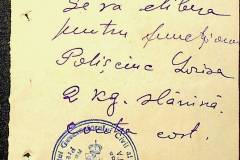 Se va elibera
pentru funcționara
Polișciuc Loisa
2 kg. slănină
contra cost.